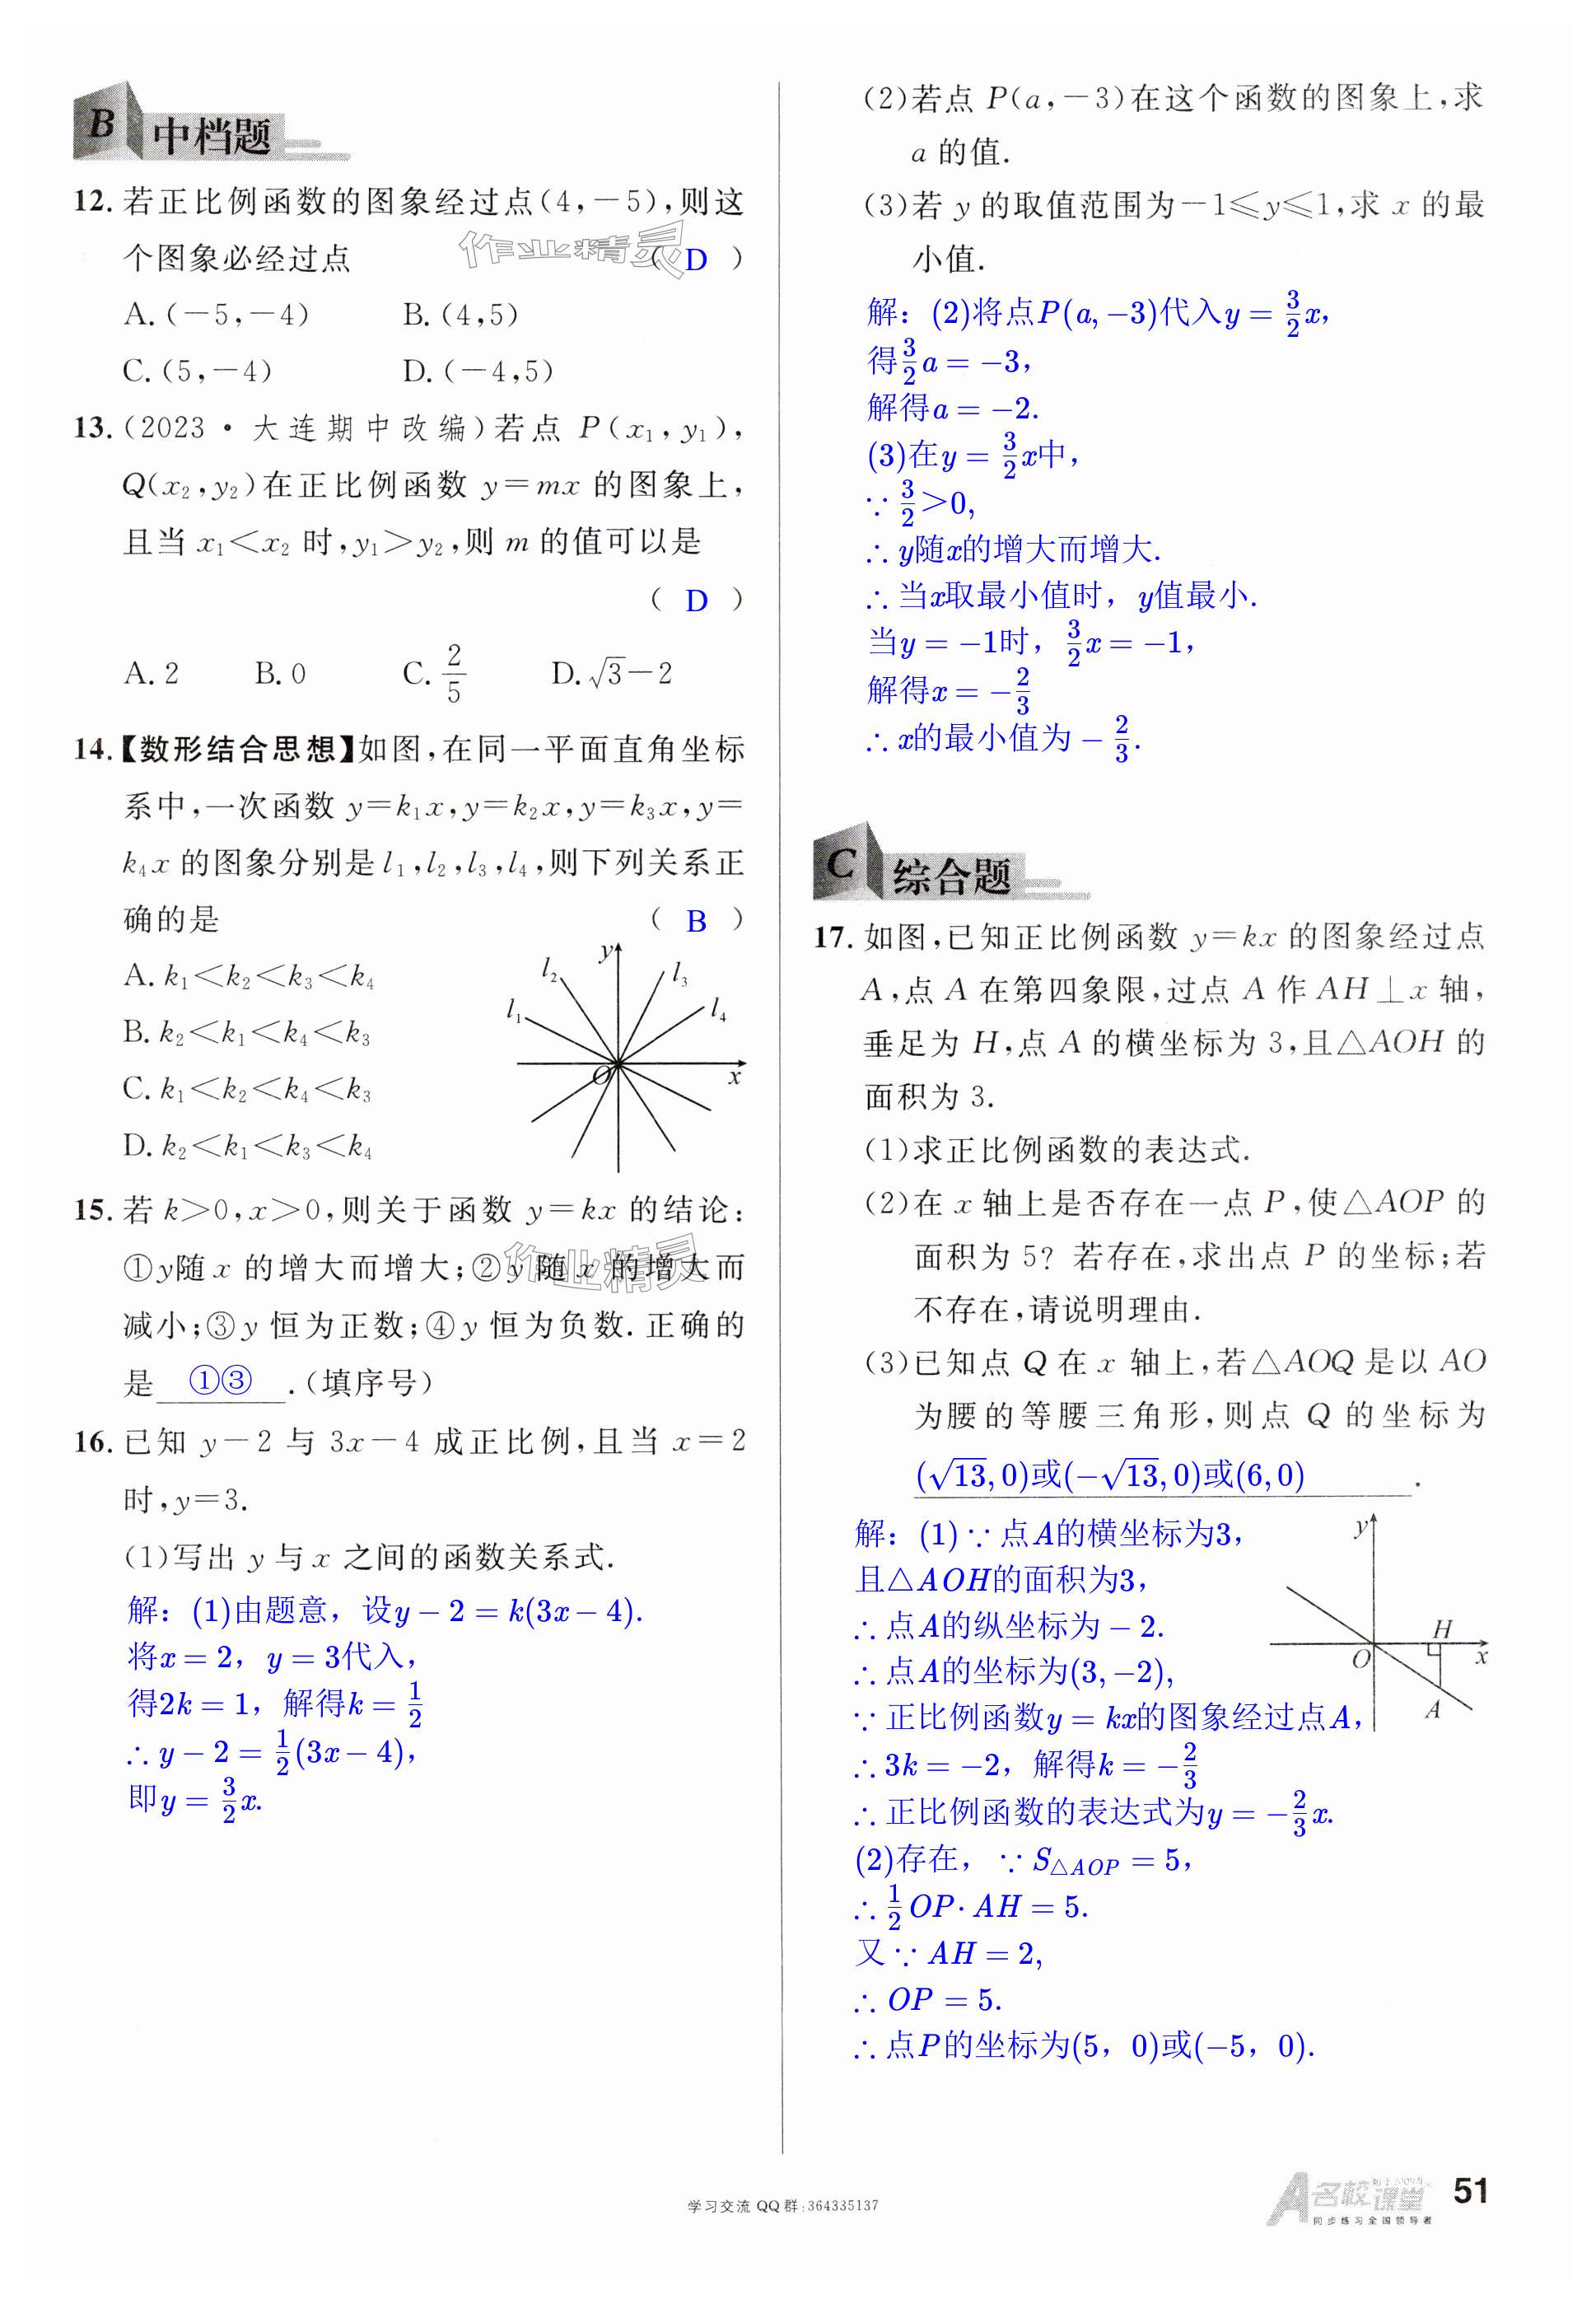 B 中档题
12. 若正比例函数的图象经过点(4,－5),则这
个图象必经过点 ( D )
作业精灵
A. (－5,－4) B. (4,5)
C. (5,－4) D. (－4,5)
13. (2023·大连期中改编)若点 P(x₁,y₁),
Q(x₂,y₂)在正比例函数 y＝mx 的图象上,
且当 x₁＜x₂ 时,y₁＞y₂,则 m 的值可以是
( D )
A. 2 B. 0 C. 2/5 D. √3－2
14.【数形结合思想】如图,在同一平面直角坐标
系中,一次函数 y＝k₁x,y＝k₂x,y＝k₃x,y＝
k₄x 的图象分别是 l₁,l₂,l₃,l₄,则下列关系正
确的是 ( B )
A. k₁＜k₂＜k₃＜k₄
B. k₂＜k₁＜k₄＜k₃
C. k₁＜k₂＜k₄＜k₃
D. k₂＜k₁＜k₃＜k₄
y l₂ l₃ l₁ l₄ O x
15. 若 k＞0,x＞0,则关于函数 y＝kx 的结论:
①y随 x 的增大而增大;②y 随 x 的增大而
作业精灵
减小;③y 恒为正数;④y 恒为负数. 正确的
是 ①③ .(填序号)
16. 已知 y－2 与 3x－4 成正比例,且当 x＝2
时,y＝3.
(1)写出 y 与 x 之间的函数关系式.
解：(1)由题意，设y－2＝k(3x－4).
将x＝2，y＝3代入，
得2k＝1，解得k＝1/2
∴y－2＝1/2(3x－4)，
即y＝3/2x.
(2)若点 P(a,－3)在这个函数的图象上,求
a 的值.
(3)若 y 的取值范围为－1≤y≤1,求 x 的最
小值.
解：(2)将点P(a,－3)代入y＝3/2x，
得3/2a＝－3，
解得a＝－2.
(3)在y＝3/2x中，
∵3/2＞0,
∴y随x的增大而增大.
∴当x取最小值时，y值最小.
当y＝－1时，3/2x＝－1，
解得x＝－2/3
∴x的最小值为－2/3.
C 综合题
17. 如图,已知正比例函数 y＝kx 的图象经过点
A,点 A 在第四象限,过点 A 作 AH⊥x 轴,
垂足为 H,点 A 的横坐标为 3,且△AOH 的
面积为 3.
(1)求正比例函数的表达式.
(2)在 x 轴上是否存在一点 P,使△AOP 的
面积为 5? 若存在,求出点 P 的坐标;若
不存在,请说明理由.
(3)已知点 Q 在 x 轴上,若△AOQ 是以 AO
为腰的等腰三角形,则点 Q 的坐标为
(√13,0)或(－√13,0)或(6,0) .
解：(1)∵点A的横坐标为3，
且△AOH的面积为3，
∴点A的纵坐标为－2.
∴点A的坐标为(3,－2),
∵正比例函数y＝kx的图象经过点A，
∴3k＝－2，解得k＝－2/3
∴正比例函数的表达式为y＝－2/3x.
y H O x A
(2)存在，∵S△AOP＝5，
∴1/2OP·AH＝5.
又∵AH＝2,
∴OP＝5.
∴点P的坐标为(5，0)或(－5，0).
学习交流QQ群:364335137
名校课堂
同步练习全国领导者
51